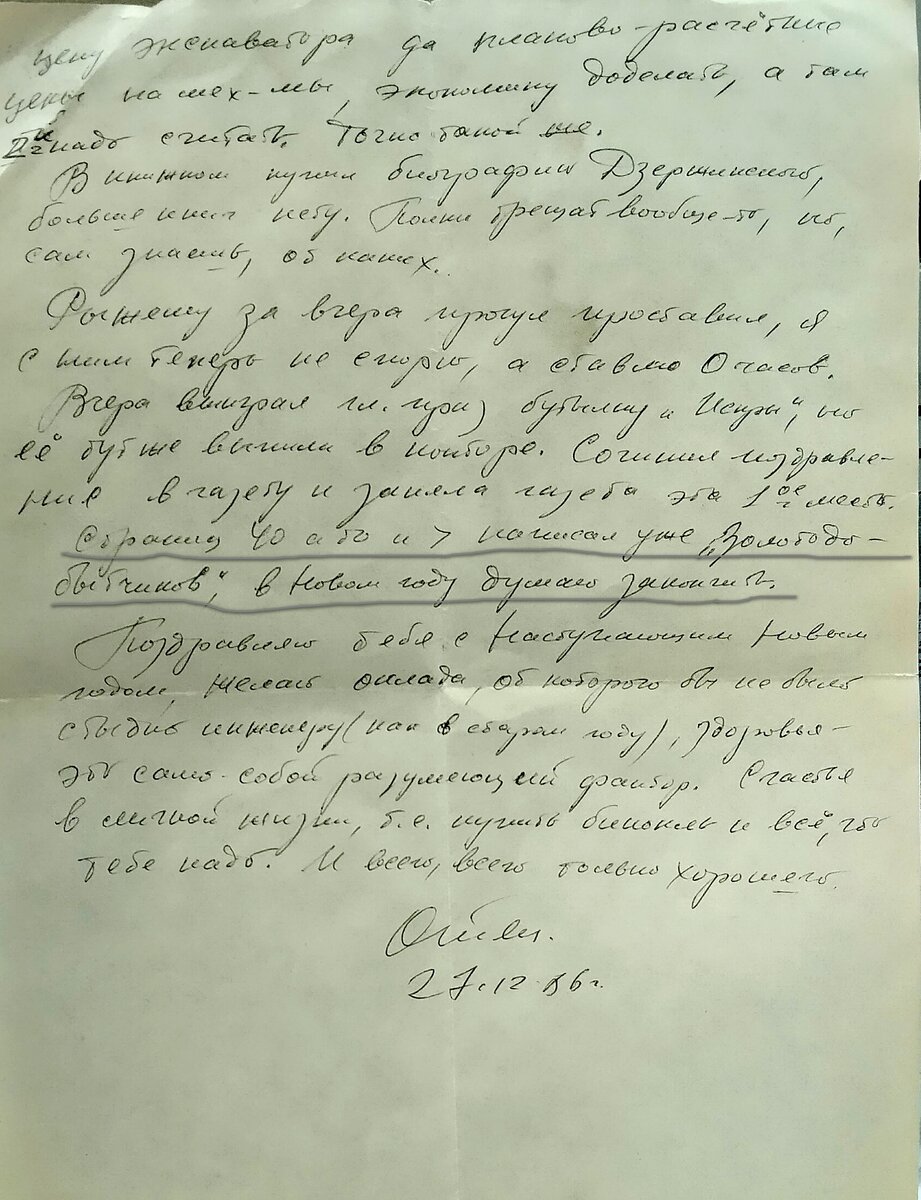 цену экскаватора да планово-расчётные
цены на мех-мы, экономику доделать, а там
надо считать. Точно такой же.
В книжном купил биографию Дзержинского,
больше книг нету. Полки трещат вообще-то, но,
сам знаешь, от каких.
Рыжему за вчера прогул проставил, я
с ним теперь не спорю, а ставлю 0 часов.
Вчера выиграл гл. приз бутылку „Искры“, но
её тут же выпили в конторе. Сочинил поздравле-
ние в газету и заняла газета эта 1ое место.
Страниц 40 а то и > написал уже „Золотодо-
бытчиков“, в Новом году думаю закончить.
Поздравляю тебя с Наступающим Новым
годом, желаю оклада, от которого бы не было
стыдно инженеру (как в старом году), здоровья -
это само-собой разумеющий фактор. Счастья
в личной жизни, т.е. купить бинокль и всё, что
тебе надо. И всего, всего только хорошего.
Отец.
27.12.86г.